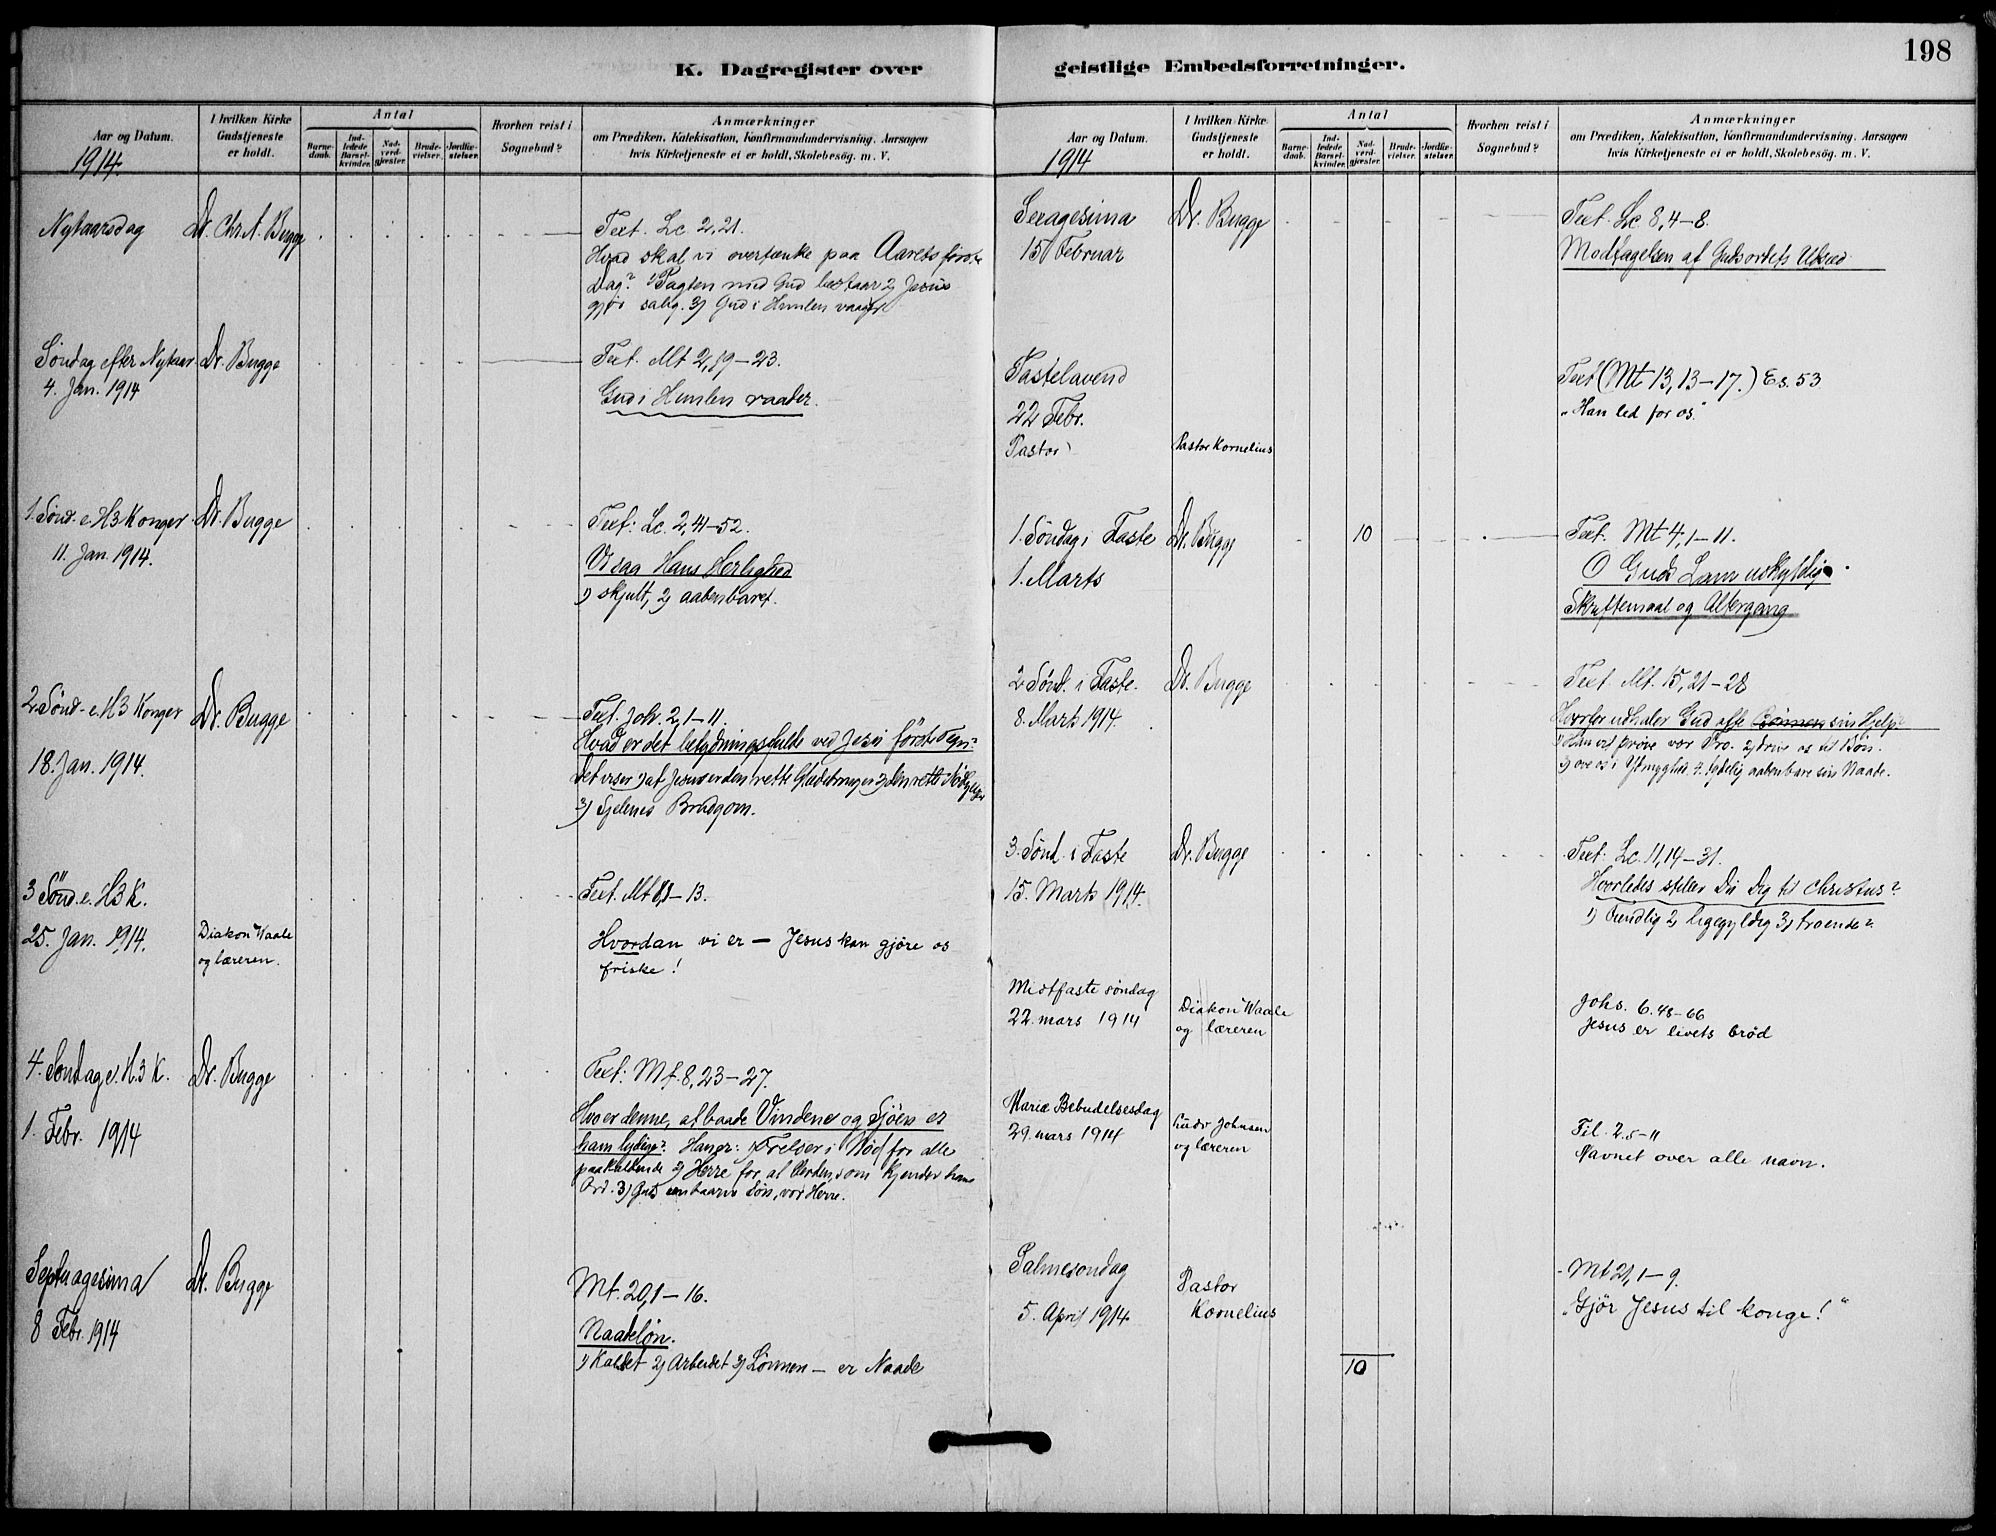 198
K. Dagregister over
Aar og Datum.
I hvilken Kirke
Gudstjeneste
er holdt.
Antal
Barne-
daab.
Ind-
ledede
Barsel-
kvinder.
Nad-
verd-
gjæster.
Brude-
vielser.
Jordfæ-
stelser.
Hvorhen reist i
Sognebud?
Anmærkninger
om Prædiken, Katekisation, Konfirmandundervisning, Aarsagen
hvis Kirketjeneste ei er holdt, Skolebesög. m. V.
1914.
Nytaarsdag
Dr. Chr. A. Bugge
Text. Lc. 2,21.
Hvad skal vi overtænke paa Aarets første
Dag? 1) Pagten med Gud bestaar 2) Jesus
gjör salig. 3) Gud i Himlen vaager
Søndag efter Nytaar
4. Jan. 1914
Dr. Bugge
Text. Mt 2,19-23.
Gud i Himlen raader.
1. Sönd. e. H3 Konger
11. Jan. 1914.
Dr. Bugge
Text: Lc. 2,41-52.
Vi saa Hans Herlighed
1) skjult, 2) aabenbaret.
2. Sönd. e. H3 Konger
18. Jan. 1914.
Dr. Bugge
Text. Joh. 2,1-11.
Hvad er det betydningsfulde ved Jesu første Tegn?
Det viser 1) at Jesus er den rette Glædebringer 2) den rette
3) Sjelenes Brudgom.
3 Sönd. e. H3 K.
25. Jan. 1914.
Diakon Waale
og læreren.
Text. Mt 8,1-13.
Hvordan vi er — Jesus kan gjöre os
friske!
4. Söndag e. H.3 K.
1. Febr. 1914
Dr. Bugge
Text: Mt. 8,23-27.
Hvo er denne, at baade Vindene og Sjöen er
ham lydige? Han er: 1) Frelser i Nöd for alle
paakaldende 2) Herre for al Verden, som kjender hans
Ord. 3) Guds enbaarne Søn, vor Herre.
Septuagesima
8 Febr. 1914
Dr. Bugge
Mt. 20,1-16.
Naadelön.
1) Kaldet 2) Arbeidet 3) Lönnen — er Naade
geistlige Embedsforretninger.
Aar og Datum.
I hvilken Kirke
Gudstjeneste
er holdt.
Antal
Barne-
daab.
Ind-
ledede
Barsel-
kvinder.
Nad-
verd-
gjæster.
Brude-
vielser.
Jordfæ-
stelser.
Hvorhen reist i
Sognebud?
Anmærkninger
om Prædiken, Katekisation, Konfirmandundervisning, Aarsagen
hvis Kirketjeneste ei er holdt, Skolebesög. m. V.
1914
Sexagesima
15 Februar
Dr. Bugge
Text. Lc 8,4-8.
Modtagelsen af Gudsordets Udsæd
Fastelavend
22 Febr.
Pastor
Pastor Kornelius
Text (Mt 13,13-17.) Es. 53
"Han led for os."
1. Söndag i Faste
1. Marts
Dr. Bugge
10
Text. Mt 4,1-11.
O Guds Lam uskyldig
Skriftemaal og Altergang
2 Sönd. i Faste.
8. Marts 1914.
Dr. Bugge
Text. Mt. 15,21-28
Hvorfor udhaler Gud ofte Bönnen sin Hjelp?
1) Han vil pröve vor Tro. 2) drive os til Bön.
3) öve os i Ydmyghed. 4. tydelig aabenbare sin Naade.
3. Sönd. i Faste
15. Marts 1914.
Dr. Bugge
Text: Lc. 11,14-31.
Hvorledes stiller Du Dig til Christus?
1) Fiendlig 2) ligegyldig 3) troende?
Midtfaste söndag
22. mars 1914
Diakon Waale
og læreren
Johs. 6. 48-66
Jesus er livets bröd
Mariæ Bebudelsesdag
29. mars 1914
Gudv Johnsen
og læreren
Fil. 2. 5-11
Navnet over alle navn.
Palmesondag
5. April 1914.
Pastor
Kornelius
Mt 21, 1-9.
"Gjör Jesus til konge!"
10